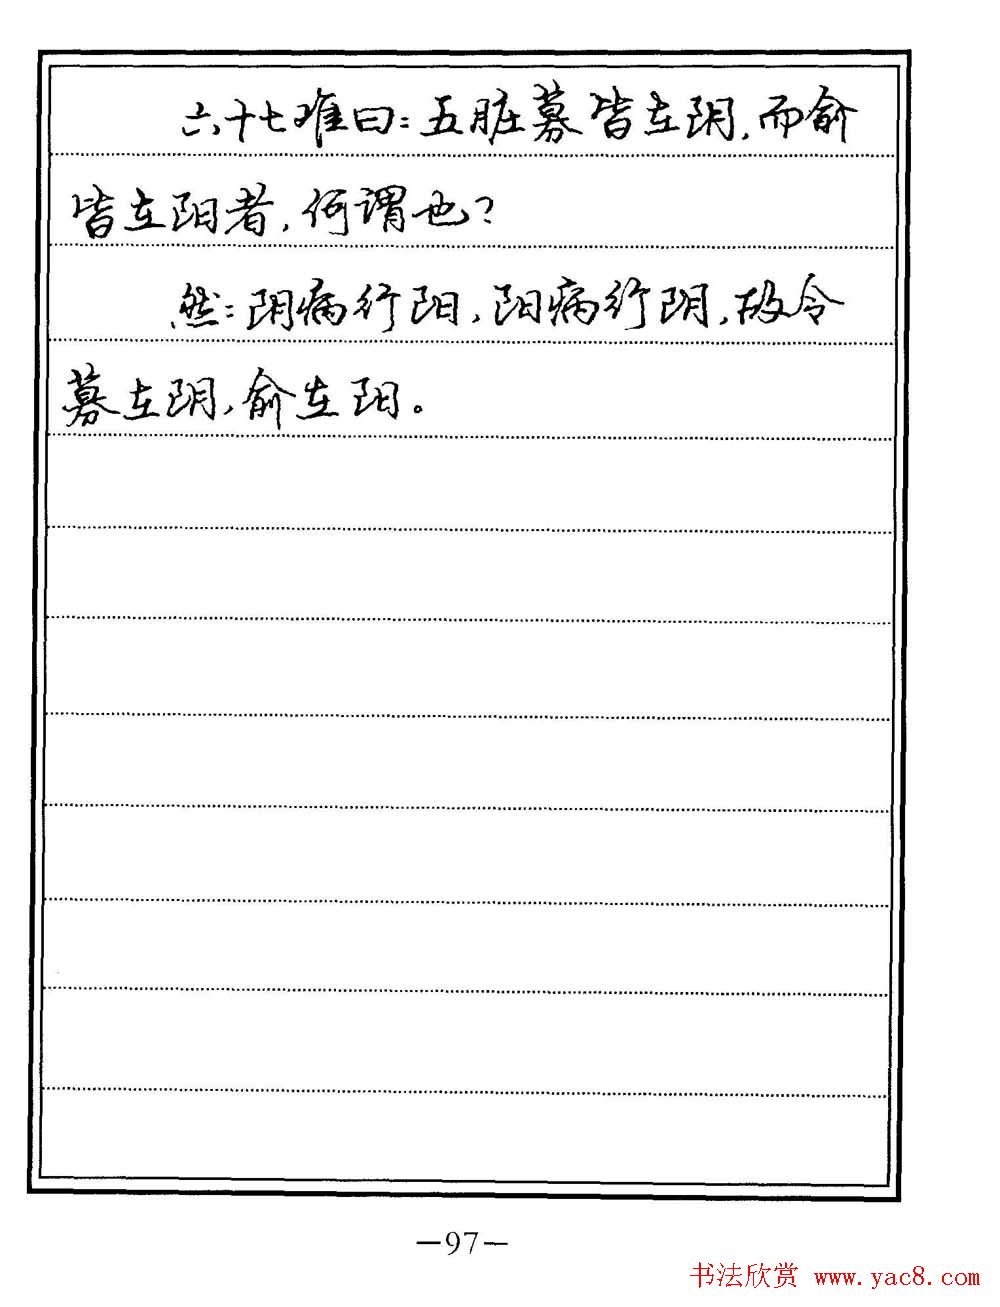 六十七难曰：五脏募皆在阴，而俞
皆在阳者，何谓也？
然：阴病行阳，阳病行阴，故令
募在阴，俞在阳。
—97—
书法欣赏 www.yac8.com